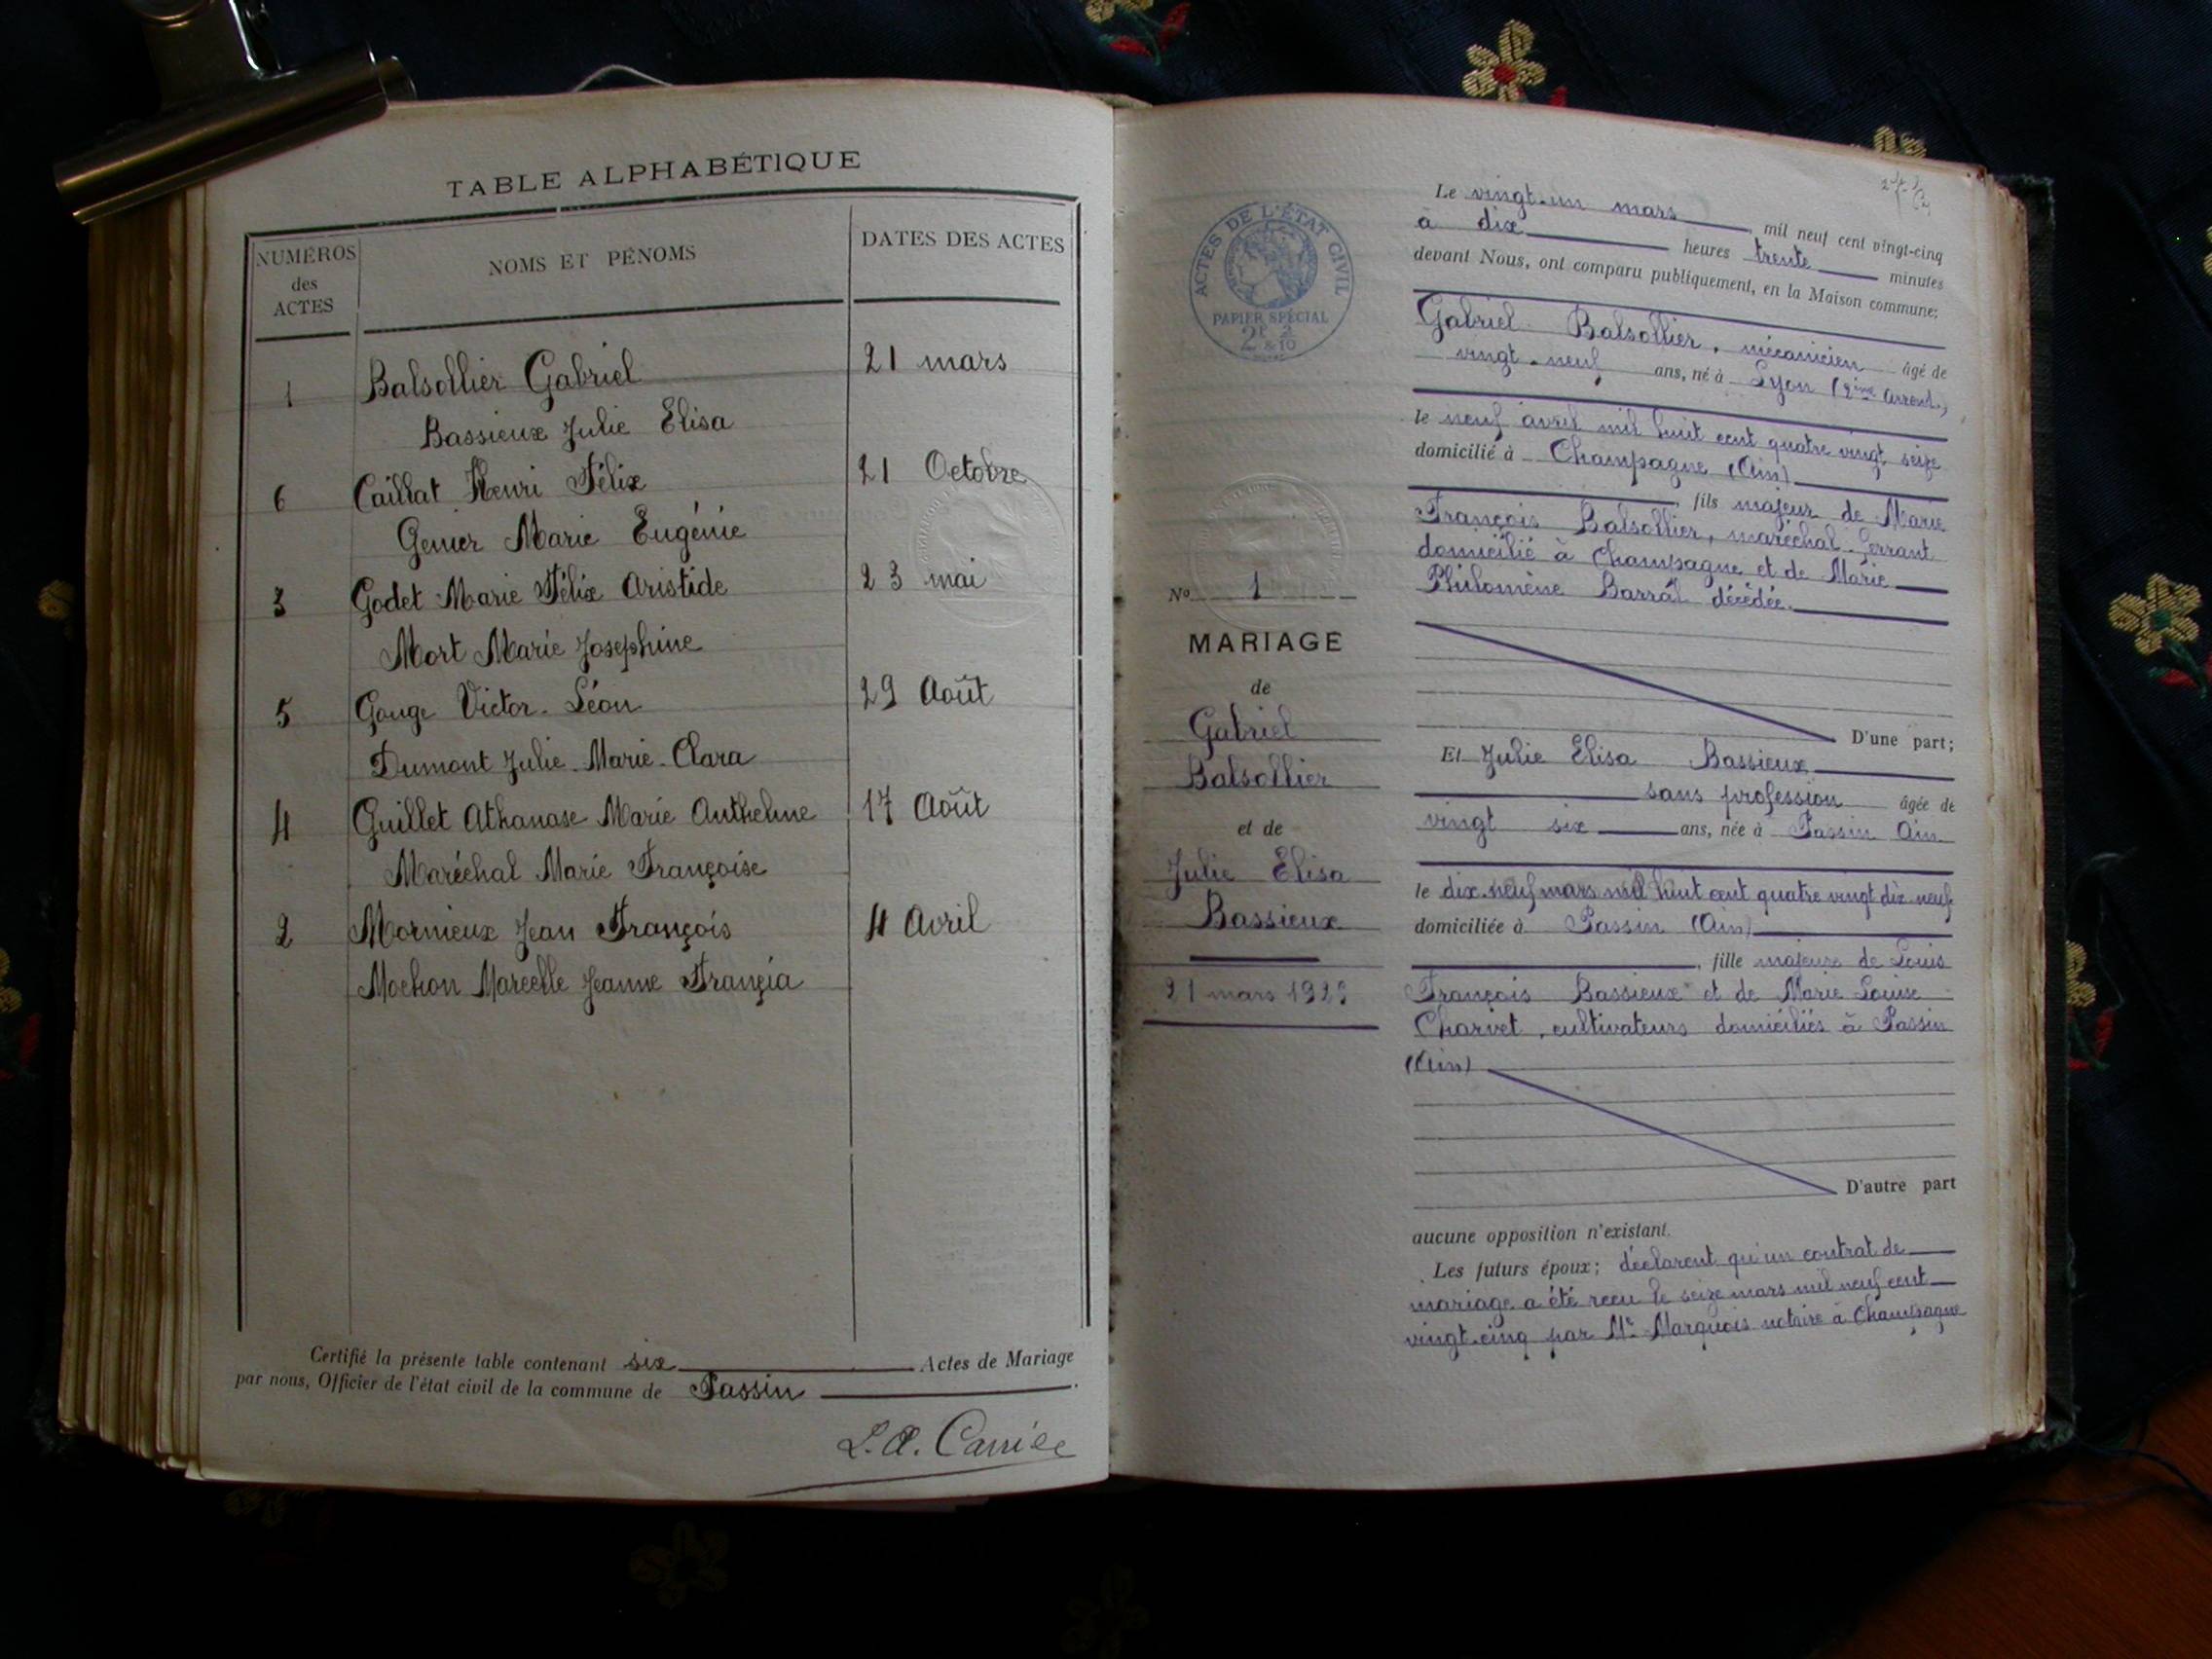 TABLE ALPHABÉTIQUE
NUMÉROS
des
ACTES
NOMS ET PÉNOMS
DATES DES ACTES
1 Balsollier Gabriel 21 mars
Bassieux Julie Elisa
6 Caillat Henri Félix 21 Octobre
Genier Marie Eugénie
3 Godet Marie Félix Aristide 23 mai
Mort Marie Josephine
5 Gouge Victor-Léon 29 Août
Dumont Julie-Marie-Clara
4 Guillet Athanase Marie Anthelme 17 Août
Maréchal Marie Françoise
2 Mornieux Jean François 4 Avril
Mochon Marcelle Jeanne Françia
Certifié la présente table contenant six Actes de Mariage
par nous, Officier de l'état civil de la commune de Passin
ACTES DE L'ÉTAT CIVIL
PAPIER SPÉCIAL
2F & 2/10
No 1
MARIAGE
de
Gabriel
Balsollier
et de
Julie Elisa
Bassieux
21 mars 1925
Le vingt-un mars, mil neuf cent vingt-cinq
à dix heures trente minutes
devant Nous, ont comparu publiquement, en la Maison commune;
Gabriel Balsollier, mécanicien âgé de
vingt-neuf ans, né à Lyon (2ème arrond.)
le neuf avril mil huit cent quatre vingt seize
domicilié à Champagne (Ain)
, fils majeur de Marie
François Balsollier, maréchal-ferrant
domicilié à Champagne et de Marie
Philomène Barral décédée.
D'une part;
Et Julie Elisa Bassieux
sans profession âgée de
vingt six ans, née à Passin Ain
le dix-neuf mars mil huit cent quatre vingt dix-neuf
domiciliée à Passin (Ain)
, fille majeure de Louis
François Bassieux et de Marie Louise
Charvet, cultivateurs domiciliés à Passin
(Ain)
D'autre part
aucune opposition n'existant.
Les futurs époux; déclarent qu'un contrat de
mariage a été reçu le seize mars mil neuf cent
vingt-cinq par Me Marquois notaire à Champagne